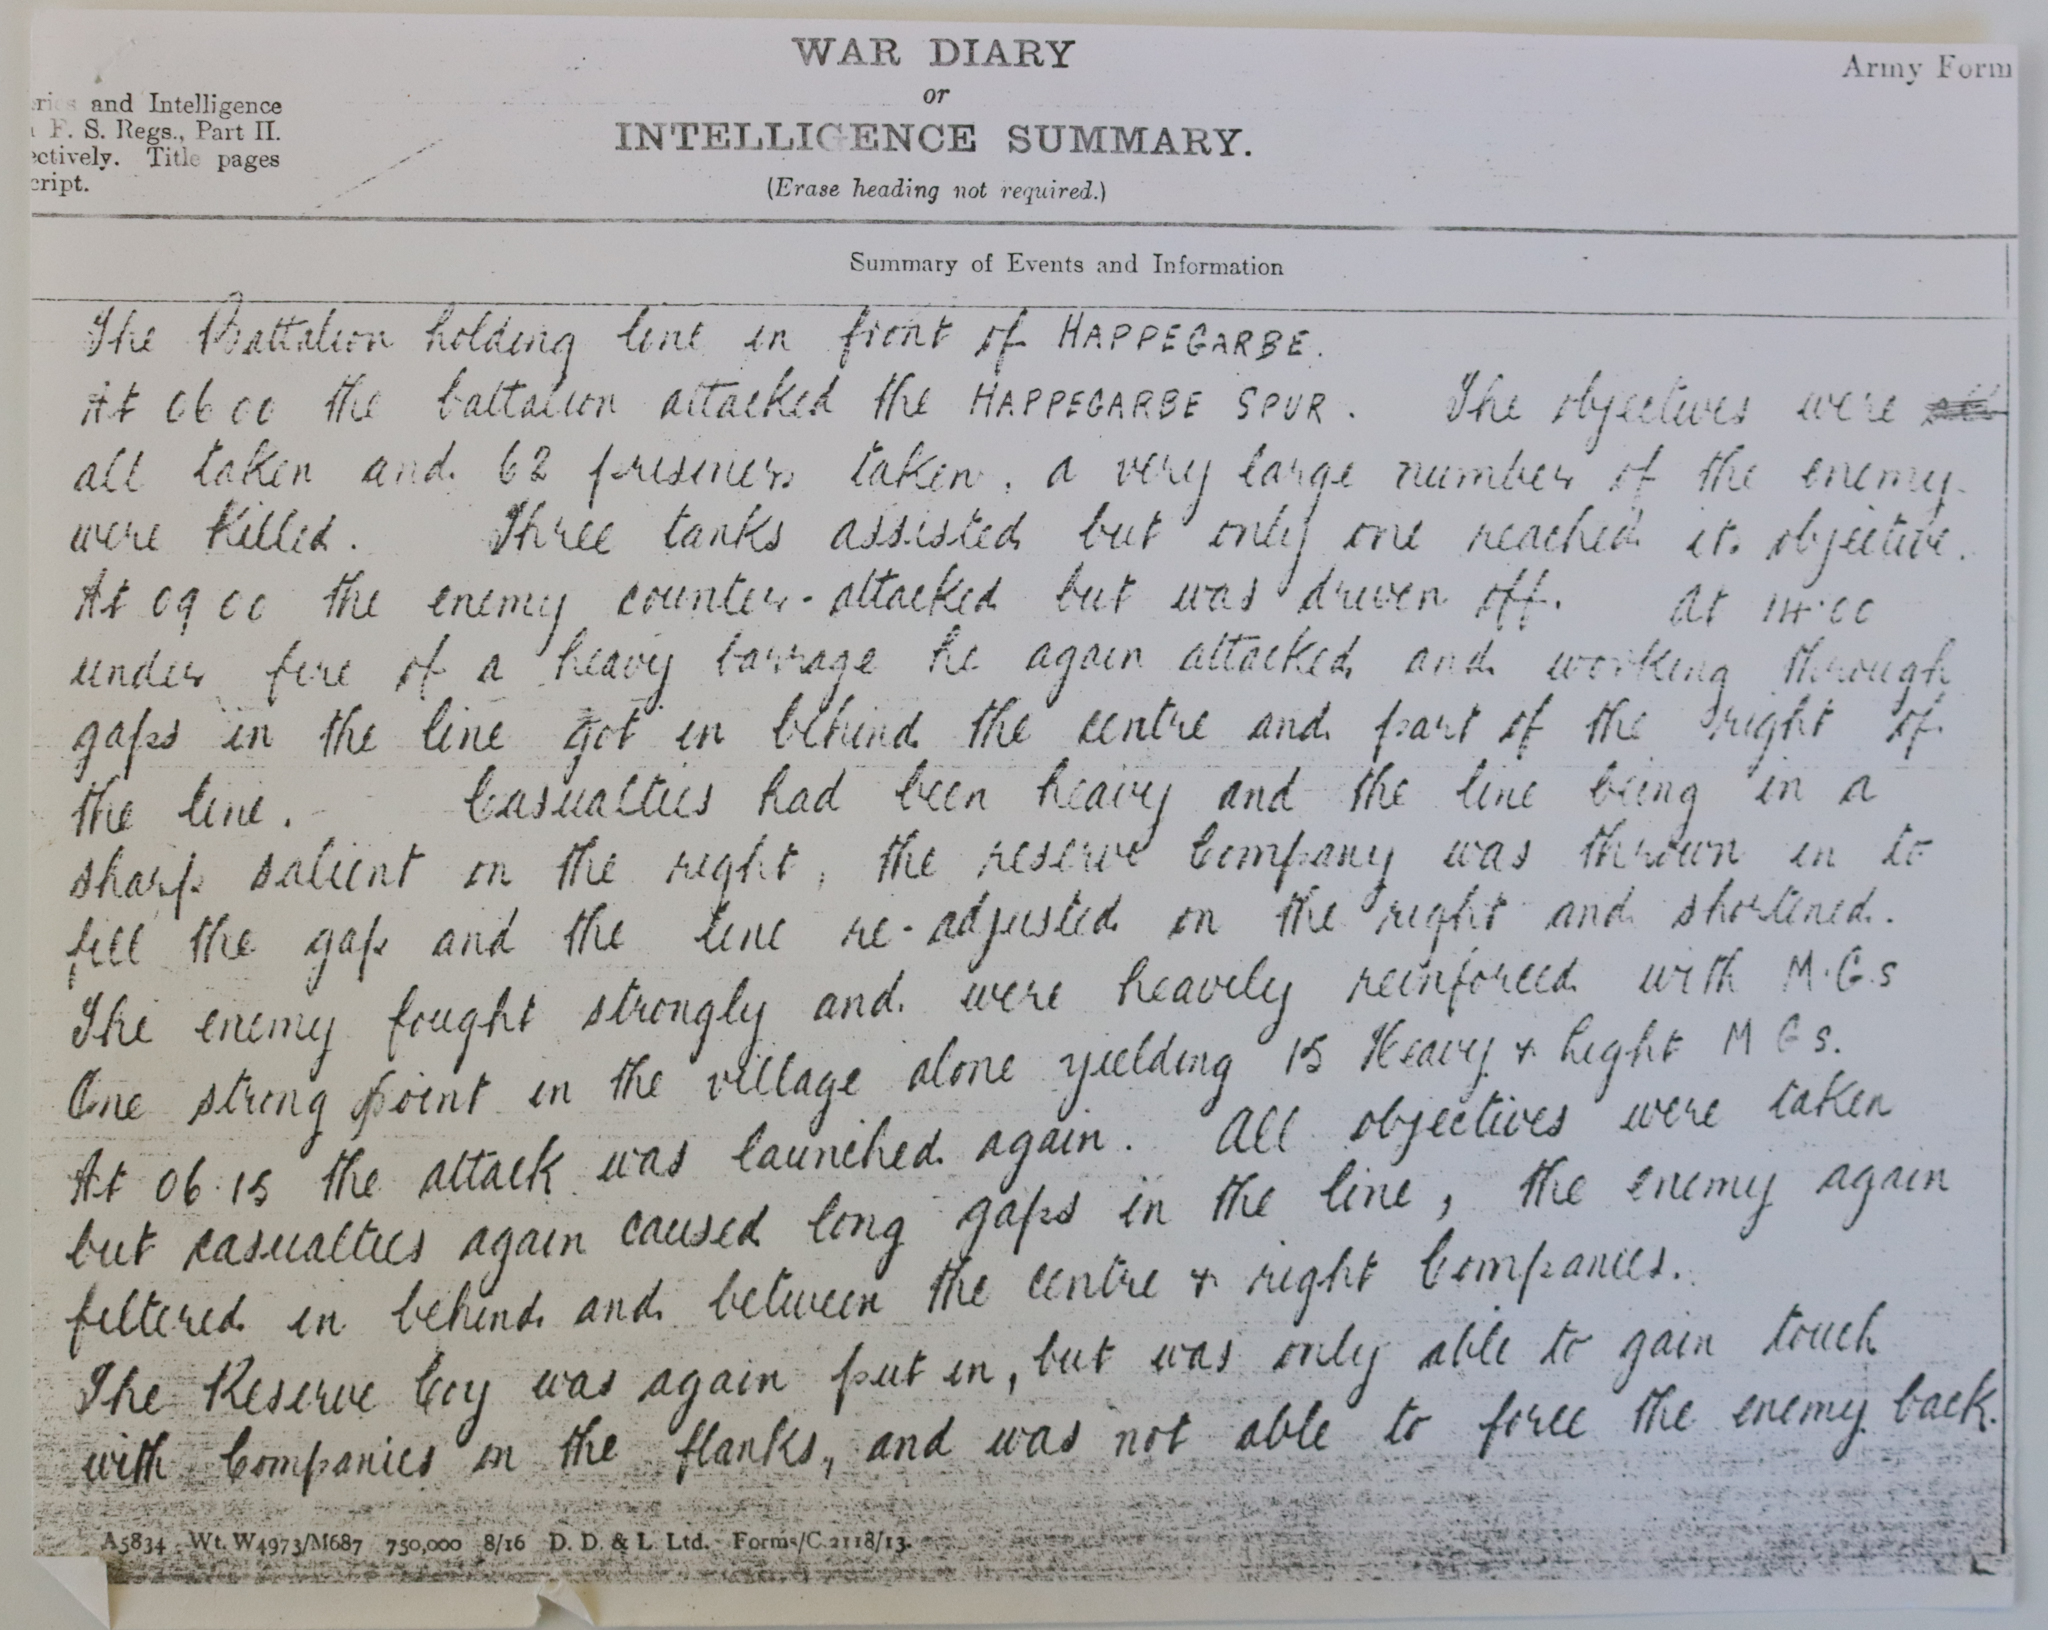 WAR DIARY
or
INTELLIGENCE SUMMARY.
(Erase heading not required.)
Army Form
and Intelligence
F. S. Regs., Part II.
ectively. Title pages
cript.
Summary of Events and Information
The Battalion holding line in front of HAPPEGARBE.
At 06 00 the battalion attacked the HAPPEGARBE SPUR. The objectives were
all taken and 62 prisoners taken, a very large number of the enemy
were killed. Three tanks assisted but only one reached its objective.
At 09 00 the enemy counter-attacked but was driven off. At 14.00
under fire of a heavy barrage he again attacked and working through
gaps in the line got in behind the centre and part of the right of
the line. Casualties had been heavy and the line being in a
sharp salient on the right, the reserve Company was thrown in to
fill the gap and the line re-adjusted on the right and shortened.
The enemy fought strongly and were heavily reinforced with M.G.s
One strong point in the village alone yielding 15 Heavy + Light M G s.
At 06.15 the attack was launched again. All objectives were taken
but casualties again caused long gaps in the line, the enemy again
filtered in behind and between the centre + right Companies.
The Reserve Coy was again put in, but was only able to gain touch
with Companies on the flanks, and was not able to force the enemy back.
A5834 Wt. W4973/M687 750,000 8/16 D. D. & L. Ltd. Forms/C.2118/13.